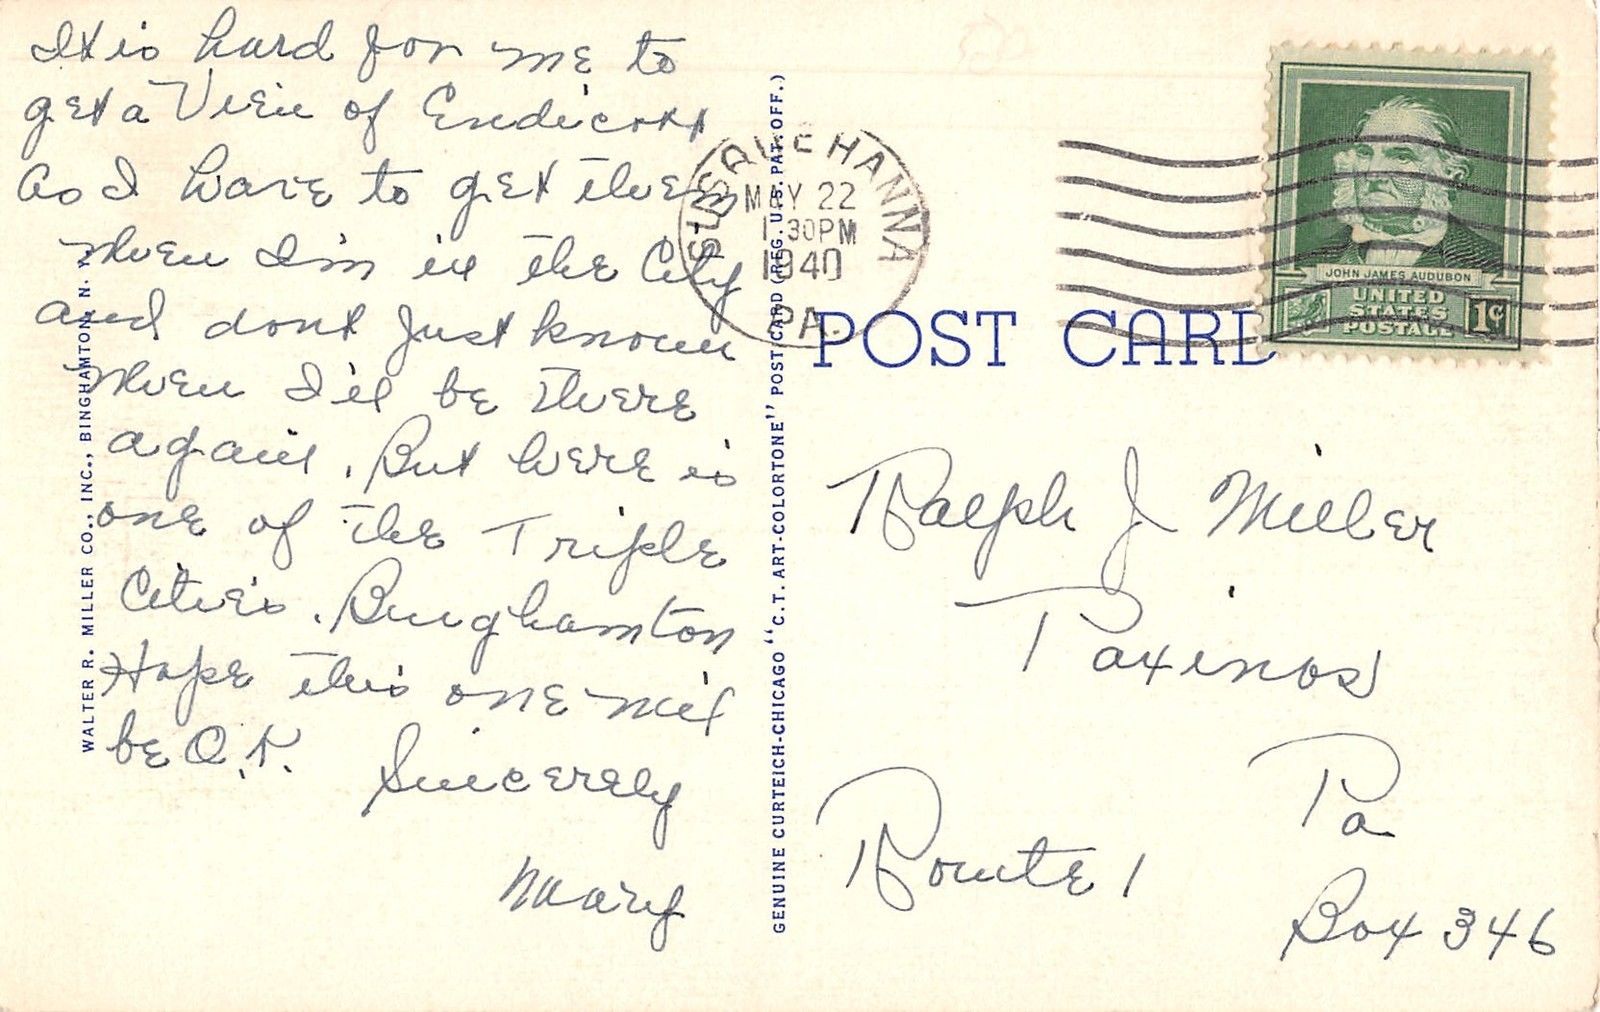 It is hard for me to
get a View of Endicott
as I have to get them
when I'm in the City
and dont Just know
when I'll be there
again. But here is
one of the Triple
Cities. Binghamton
Hope this one will
be O.K. Sincerely
Mary
WALTER R. MILLER CO., INC., BINGHAMTON, N. Y.
GENUINE CURTEICH-CHICAGO "C.T. ART-COLORTONE" POST CARD (REG. U.S. PAT. OFF.)
SUSQUEHANNA
MAY 22
1 30PM
1940
PA.
POST CARD
JOHN JAMES AUDUBON
UNITED
STATES
POSTAGE
1¢
Ralph J Miller
Paxinos
Pa
Route 1
Box 346